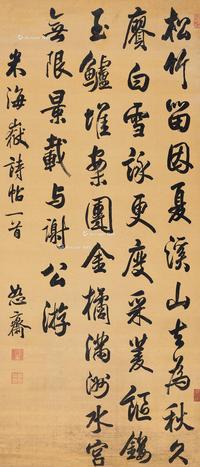 松竹留因夏溪山去為秋久
賡白雪詠更度采菱謳鏤
玉鱸堆案團金橘滿洲水宮
無限景載与謝公游
米海嶽詩帖一首 怒齋